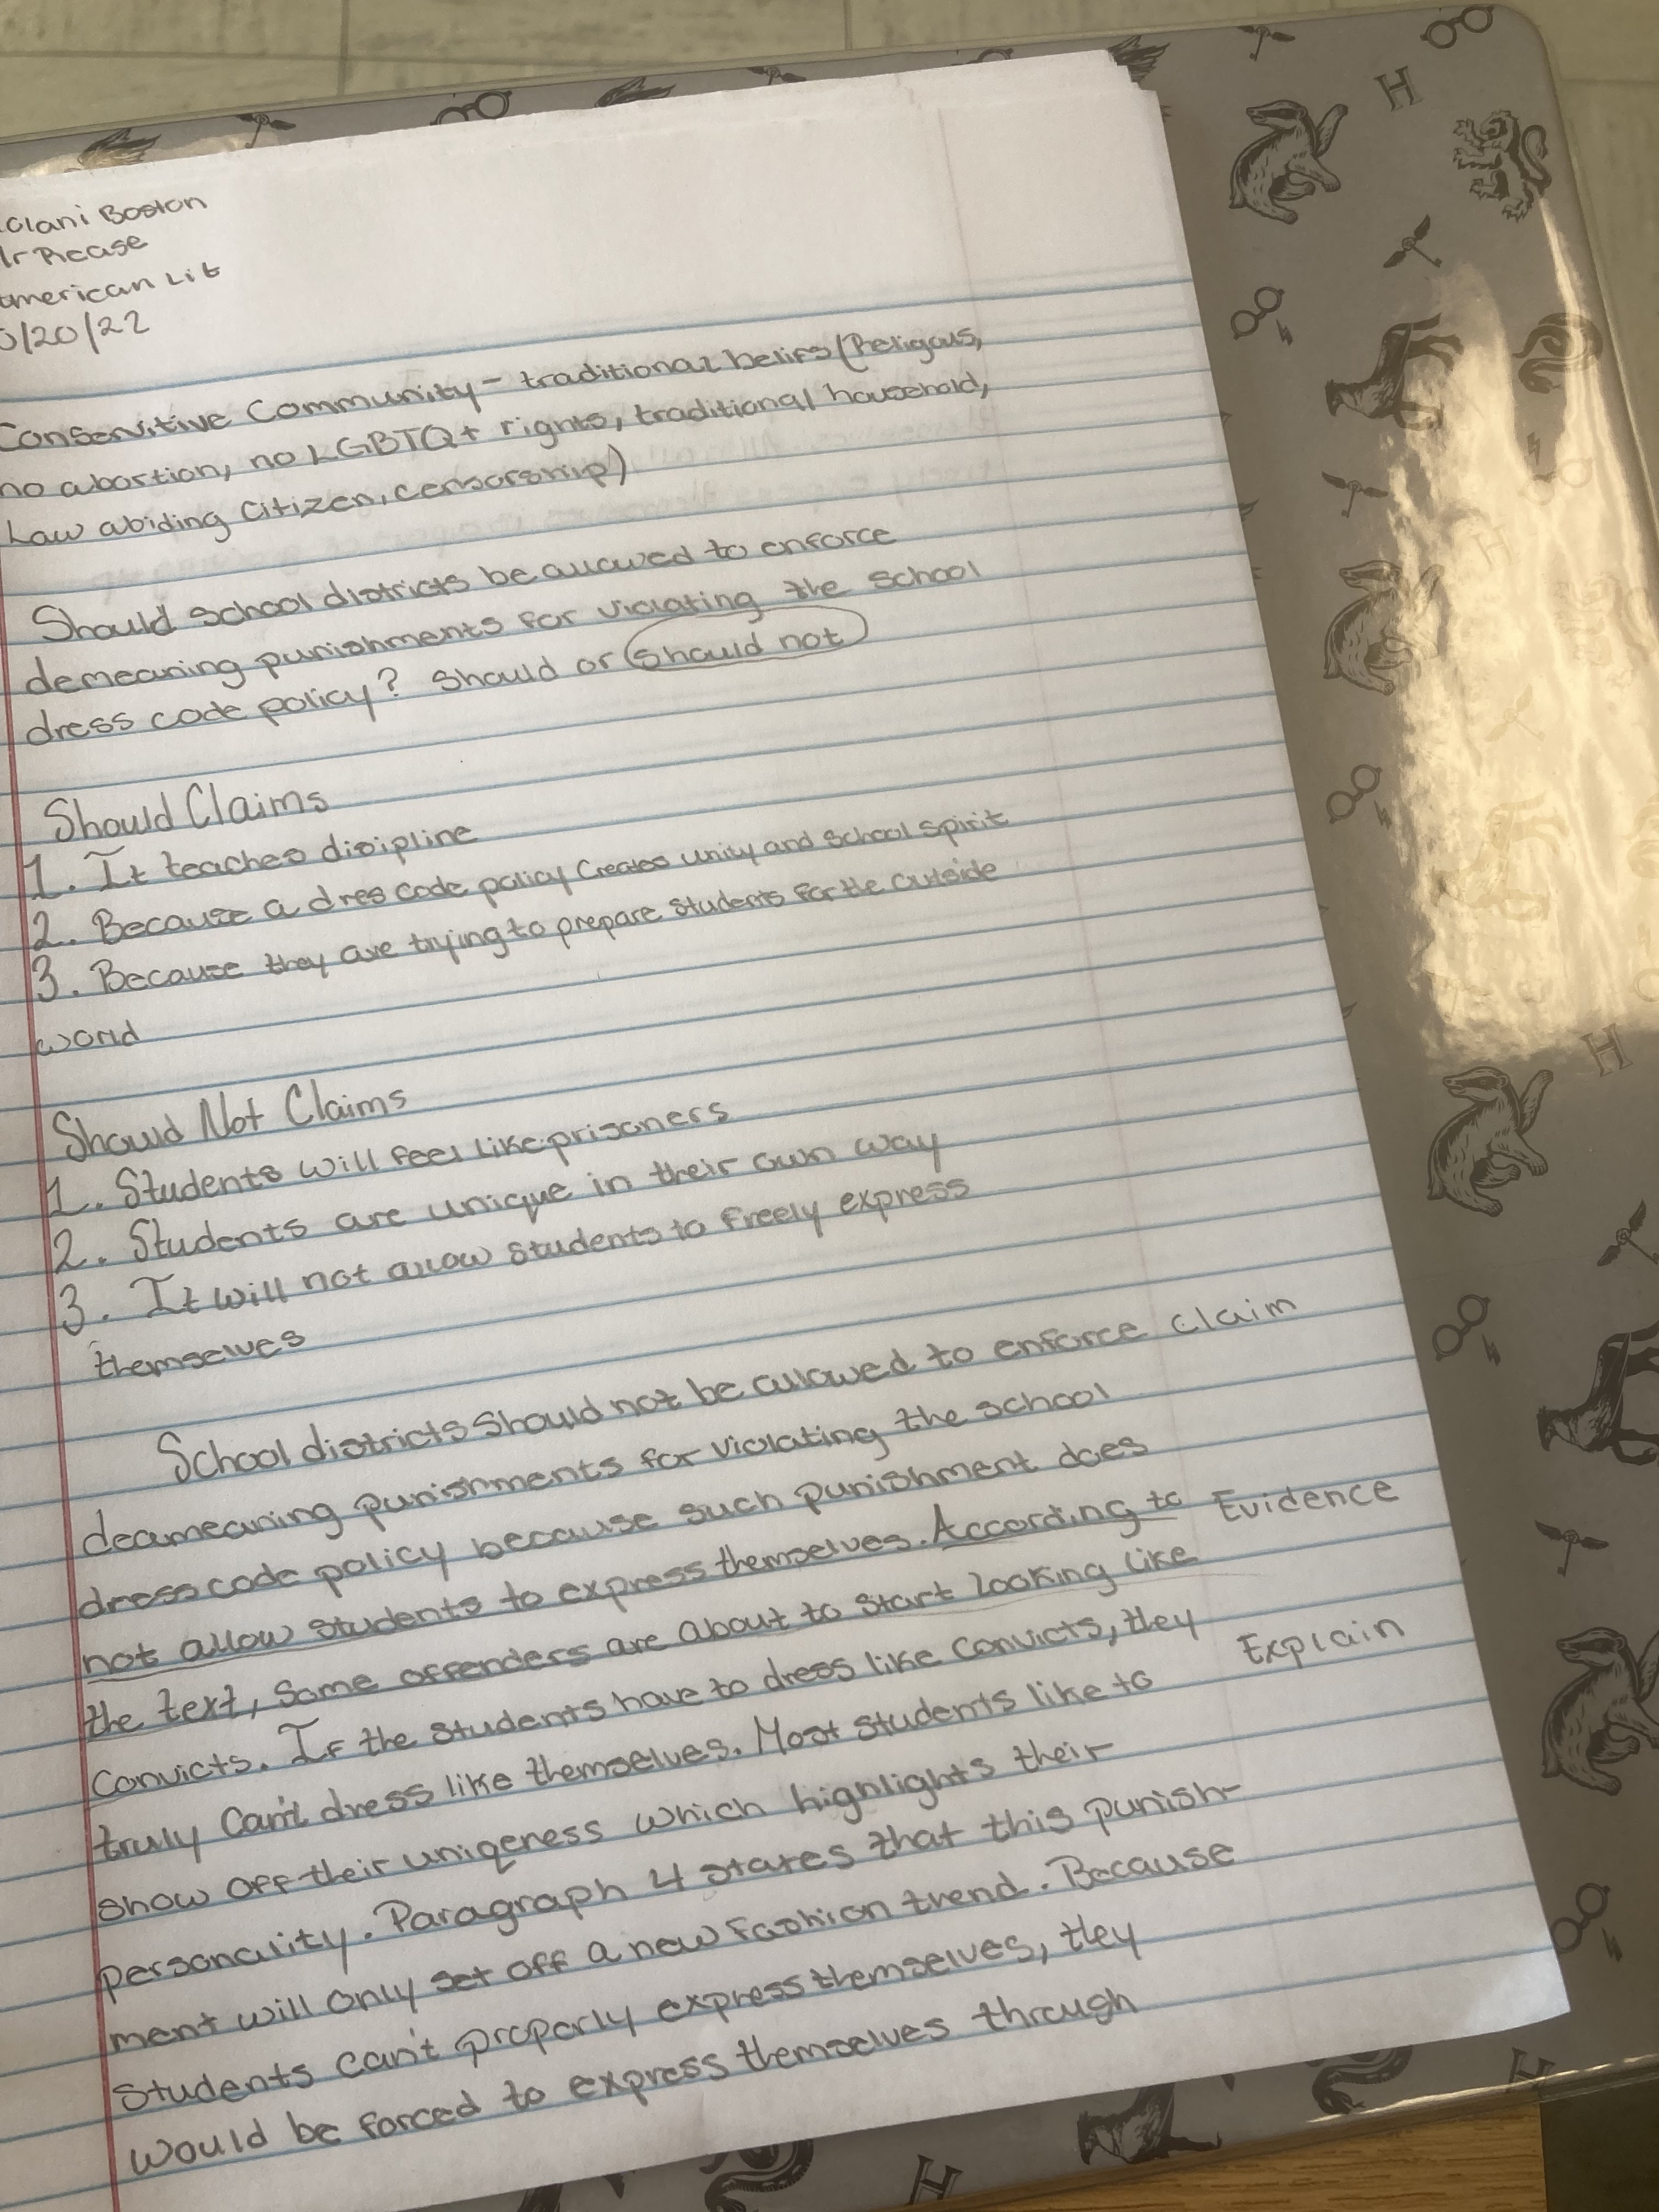 olani Boston
r Prease
American Lit
/20/22
Conservitive Community - traditional belifs (Religous,
no abortion, no LGBTQ+ rights, traditional household,
Law abiding Citizen, censorship)
Should school districts be allowed to enforce
demeaning punishments for violating the school
dress code policy? Should or should not
Should Claims
1. It teaches disipline
2. Because a dres code policy Creates unity and School Spirit
3. Because they are trying to prepare Students for the outside
world
Should Not Claims
1. Students will feel like prisoners
2. Students are unique in their own way
3. It will not allow students to freely express
themselves
School districts should not be allowed to enforce claim
deameaning punishments for violating the school
dress code policy because such punishment does
not allow students to express themselves. According to Evidence
the text, Some offenders are about to start looking like
convicts. If the students have to dress like convicts, they Explain
truly can't dress like themselves. Most students like to
show off their uniqeness which highlights their
personality. Paragraph 4 states that this punish-
ment will only set off a new fashion trend. Because
students can't properly express themselves, they
would be forced to express themselves through
H
H
H
H
H